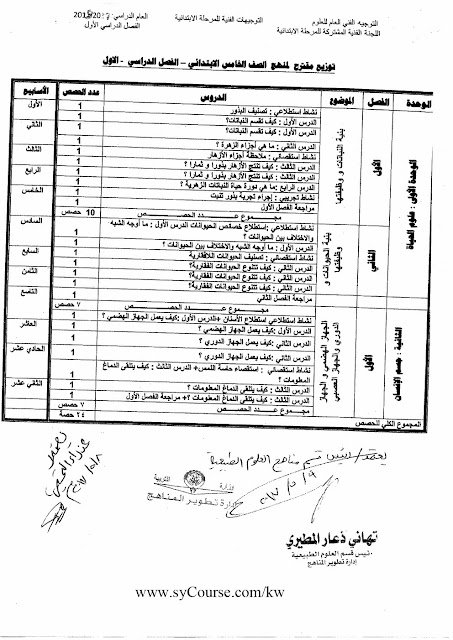 التوجيه الفني العام للعلوم
اللجنة الفنية المشتركة للمرحلة الابتدائية
التوجيهات الفنية للمرحلة الابتدائية
العام الدراسي
الفصل الدراسي الأول
توزيع مقترح لمنهج الصف الخامس الابتدائي - الفصل الدراسي - الاول
الوحدة الفصل الموضوع الدروس عدد الحصص الأسابيع
الوحدة الأولى : علوم الحياة
الأول
بنية النباتات و وظيفتها
نشاط استطلاعي : تصنيف البذور 1 الأول
الدرس الأول : كيف تقسم النباتات؟ 1
الدرس الأول : كيف تقسم النباتات؟ 1 الثاني
الدرس الثاني : ما هي أجزاء الزهرة ؟ 1
نشاط استقصائي : ملاحظة أجزاء الأزهار 1 الثالث
الدرس الثالث : كيف تنتج الأزهار بذورا و ثمارا ؟ 1
الدرس الثالث : كيف تنتج الأزهار بذورا و ثمارا ؟ 1 الرابع
الدرس الرابع :ما هي دورة حياة النباتات الزهرية ؟ 1
نشاط تجريبي : إجراء تجربة بذور تنبت 1 الخامس
مراجعة الفصل الأول 1
مجموع عدد الحصص 10 حصص
الثاني
بنية الحيوانات و وظيفتها
نشاط استطلاعي :استطلاع خصائص الحيوانات الدرس الأول : ما أوجه الشبه والاختلاف بين الحيوانات ؟ 1 السادس
الدرس الأول : ما أوجه الشبه والاختلاف بين الحيوانات ؟ 1
نشاط استقصائي : تصنيف الحيوانات اللافقارية 1 السابع
الدرس الثاني : كيف تتنوع الحيوانات الفقارية؟ 1
الدرس الثاني : كيف تتنوع الحيوانات الفقارية؟ 1 الثامن
الدرس الثاني : كيف تتنوع الحيوانات الفقارية؟ 1
مراجعة الفصل الثاني 1 التاسع
مجموع عدد الحصص ٧ حصص
الثانية : جسم الإنسان
الأول
الجهاز الهضمي و الجهاز الدوري والجهاز العصبي
نشاط استطلاعي استطلاع الأسنان +الدرس الأول :كيف يعمل الجهاز الهضمي ؟ 1
الدرس الأول :كيف يعمل الجهاز الهضمي ؟ 1 العاشر
الدرس الثاني :كيف يعمل الجهاز الدوري ؟ 1
الدرس الثاني :كيف يعمل الجهاز الدوري ؟ 1 الحادي عشر
نشاط استقصائي : استقصاء حاسة اللمس+ الدرس الثالث : كيف يتلقى الدماغ المعلومات ؟ 1
الدرس الثالث : كيف يتلقى الدماغ المعلومات ؟ 1 الثاني عشر
الدرس الثالث : كيف يتلقى الدماغ المعلومات ؟+ مراجعة الفصل الأول 1
مجموع عدد الحصص ٧ حصص
المجموع الكلي للحصص ٢٤ حصة
يعتمد / رئيس قسم مناهج العلوم الطبيعية
وزارة التربية
إدارة تطوير المناهج
تهاني ذعار المطيري
رئيس قسم العلوم الطبيعية
إدارة تطوير المناهج
www.syCourse.com/kw